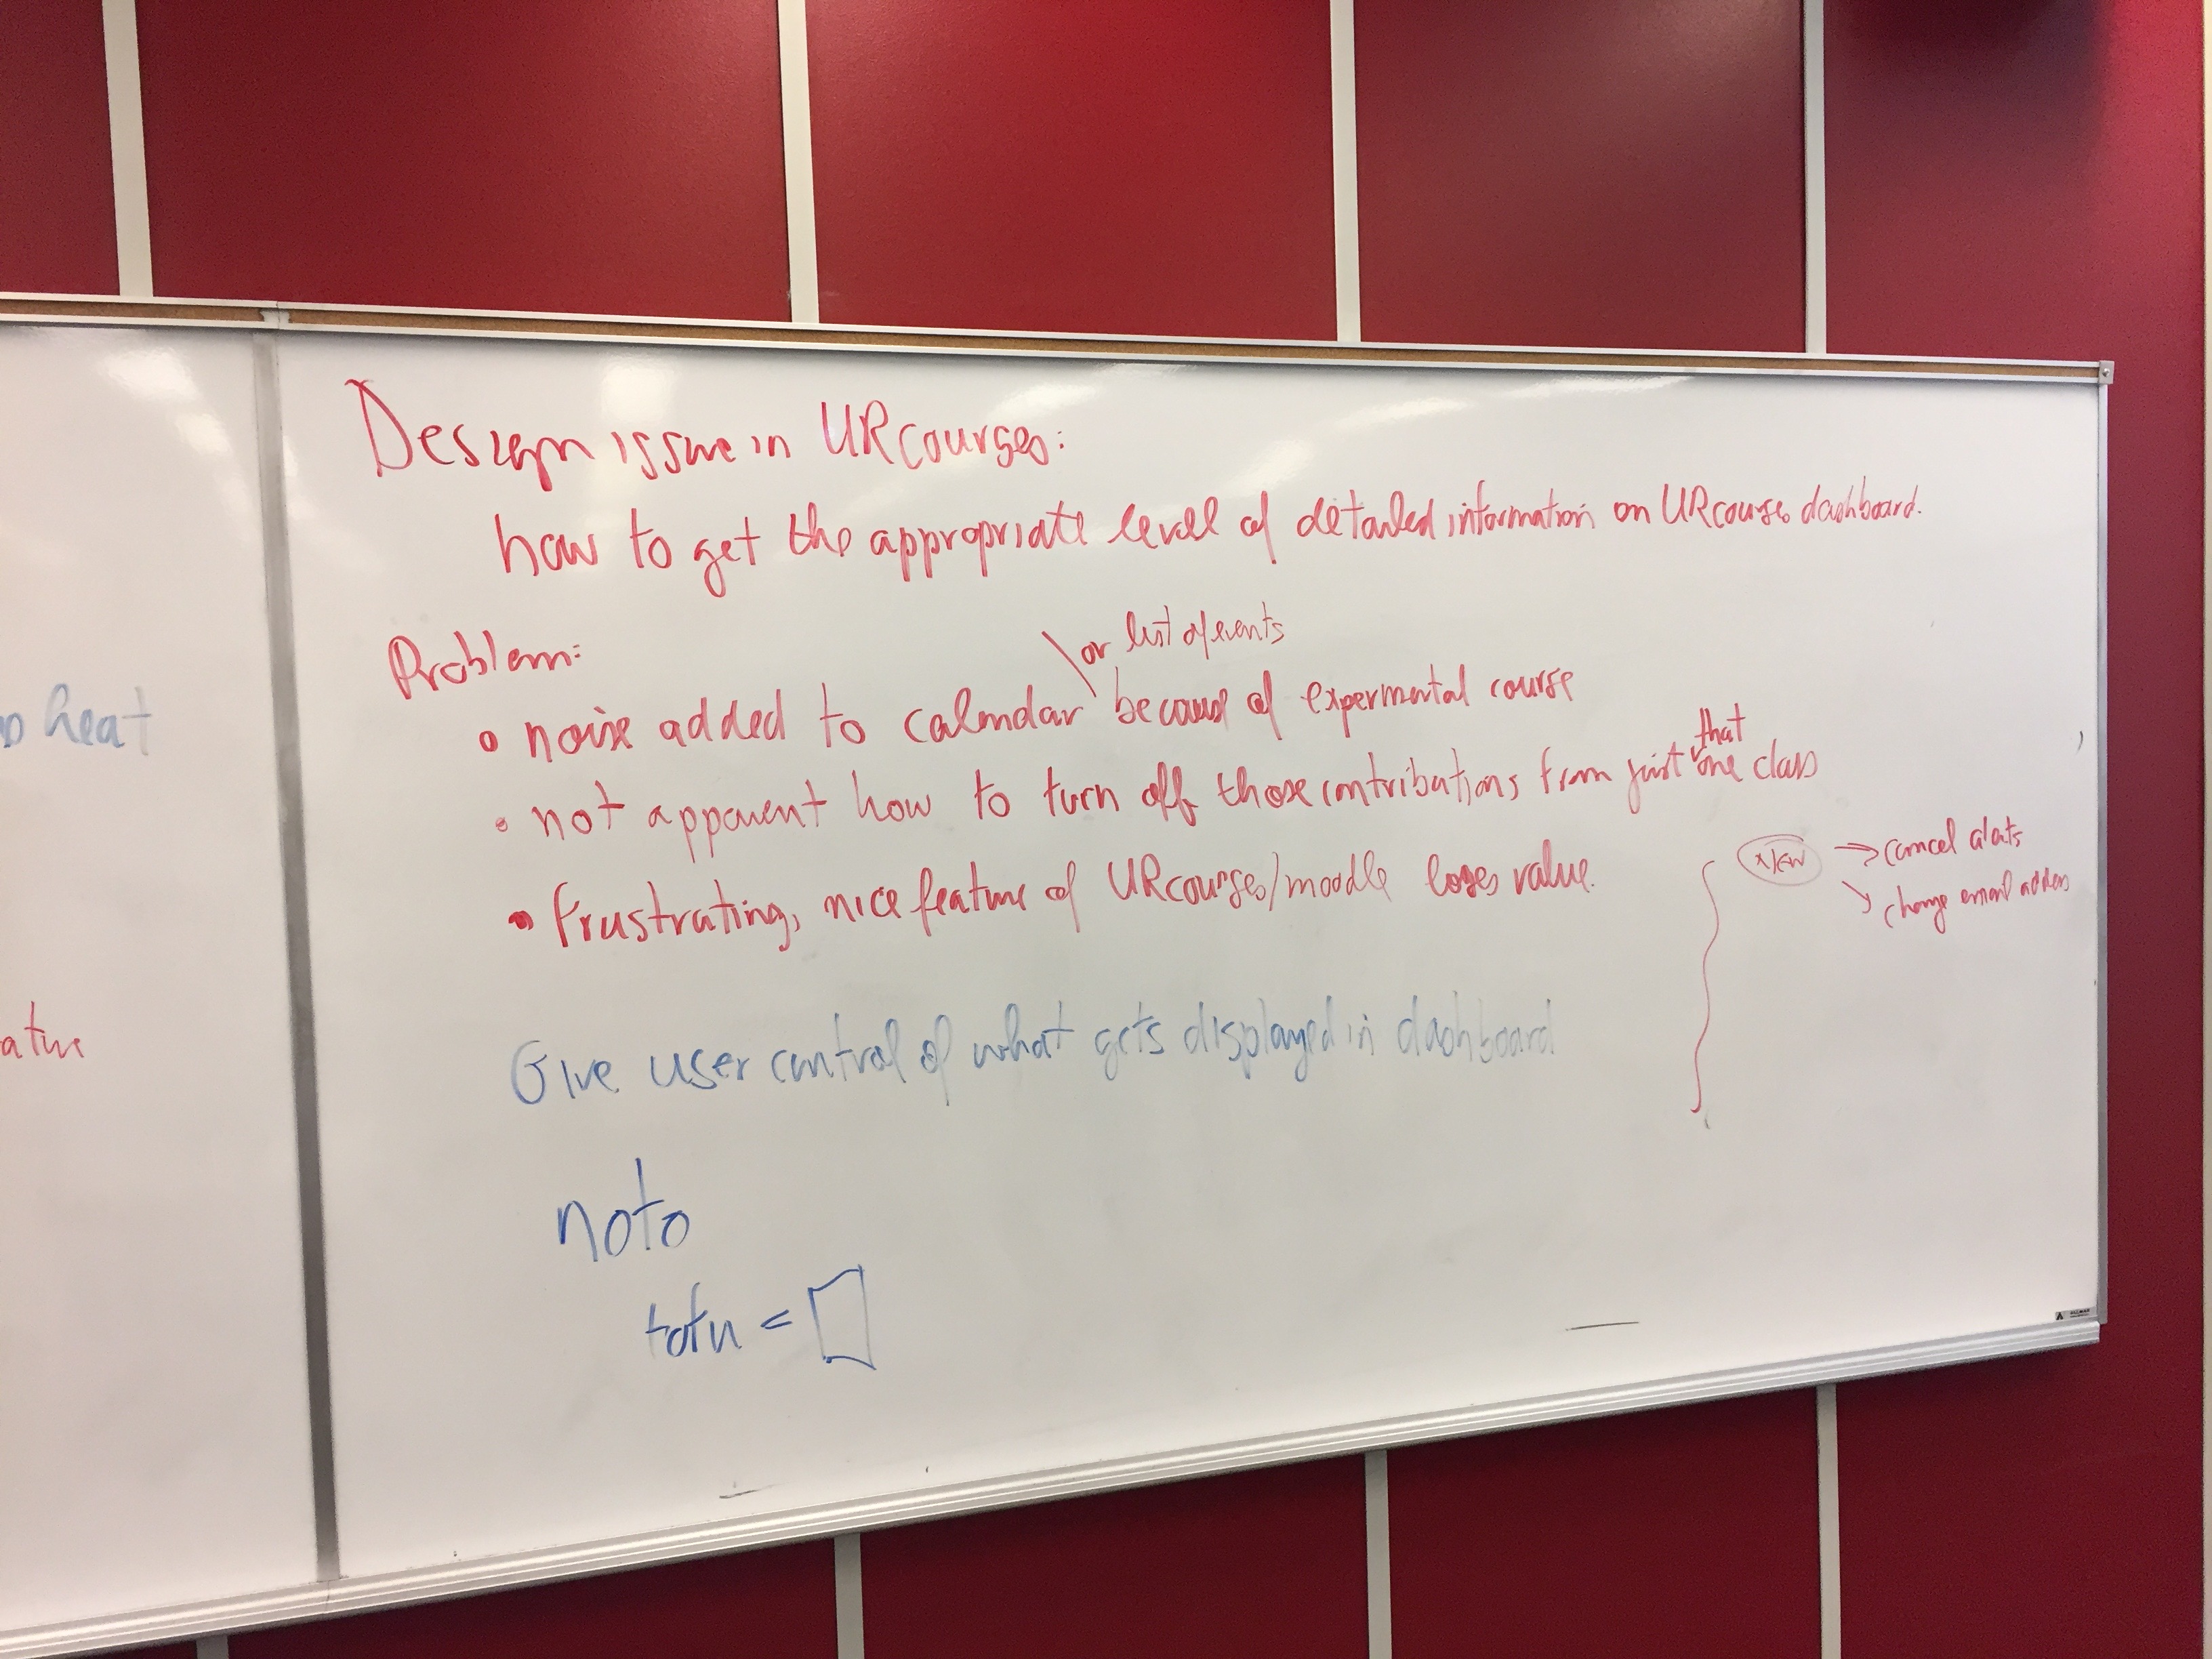 Design issue in URcourses:
how to get the appropriate level of detailed information on URcourses dashboard.
Problem:
or list of events
• noise added to calendar because of expermental course
that
• not apparent how to turn off those contributions from just one class
• frustrating, nice feature of URcourses/moodle loses value.
→ cancel alerts
change email address
Give user control of what gets displayed in dashboard
noto
tofu =
heat